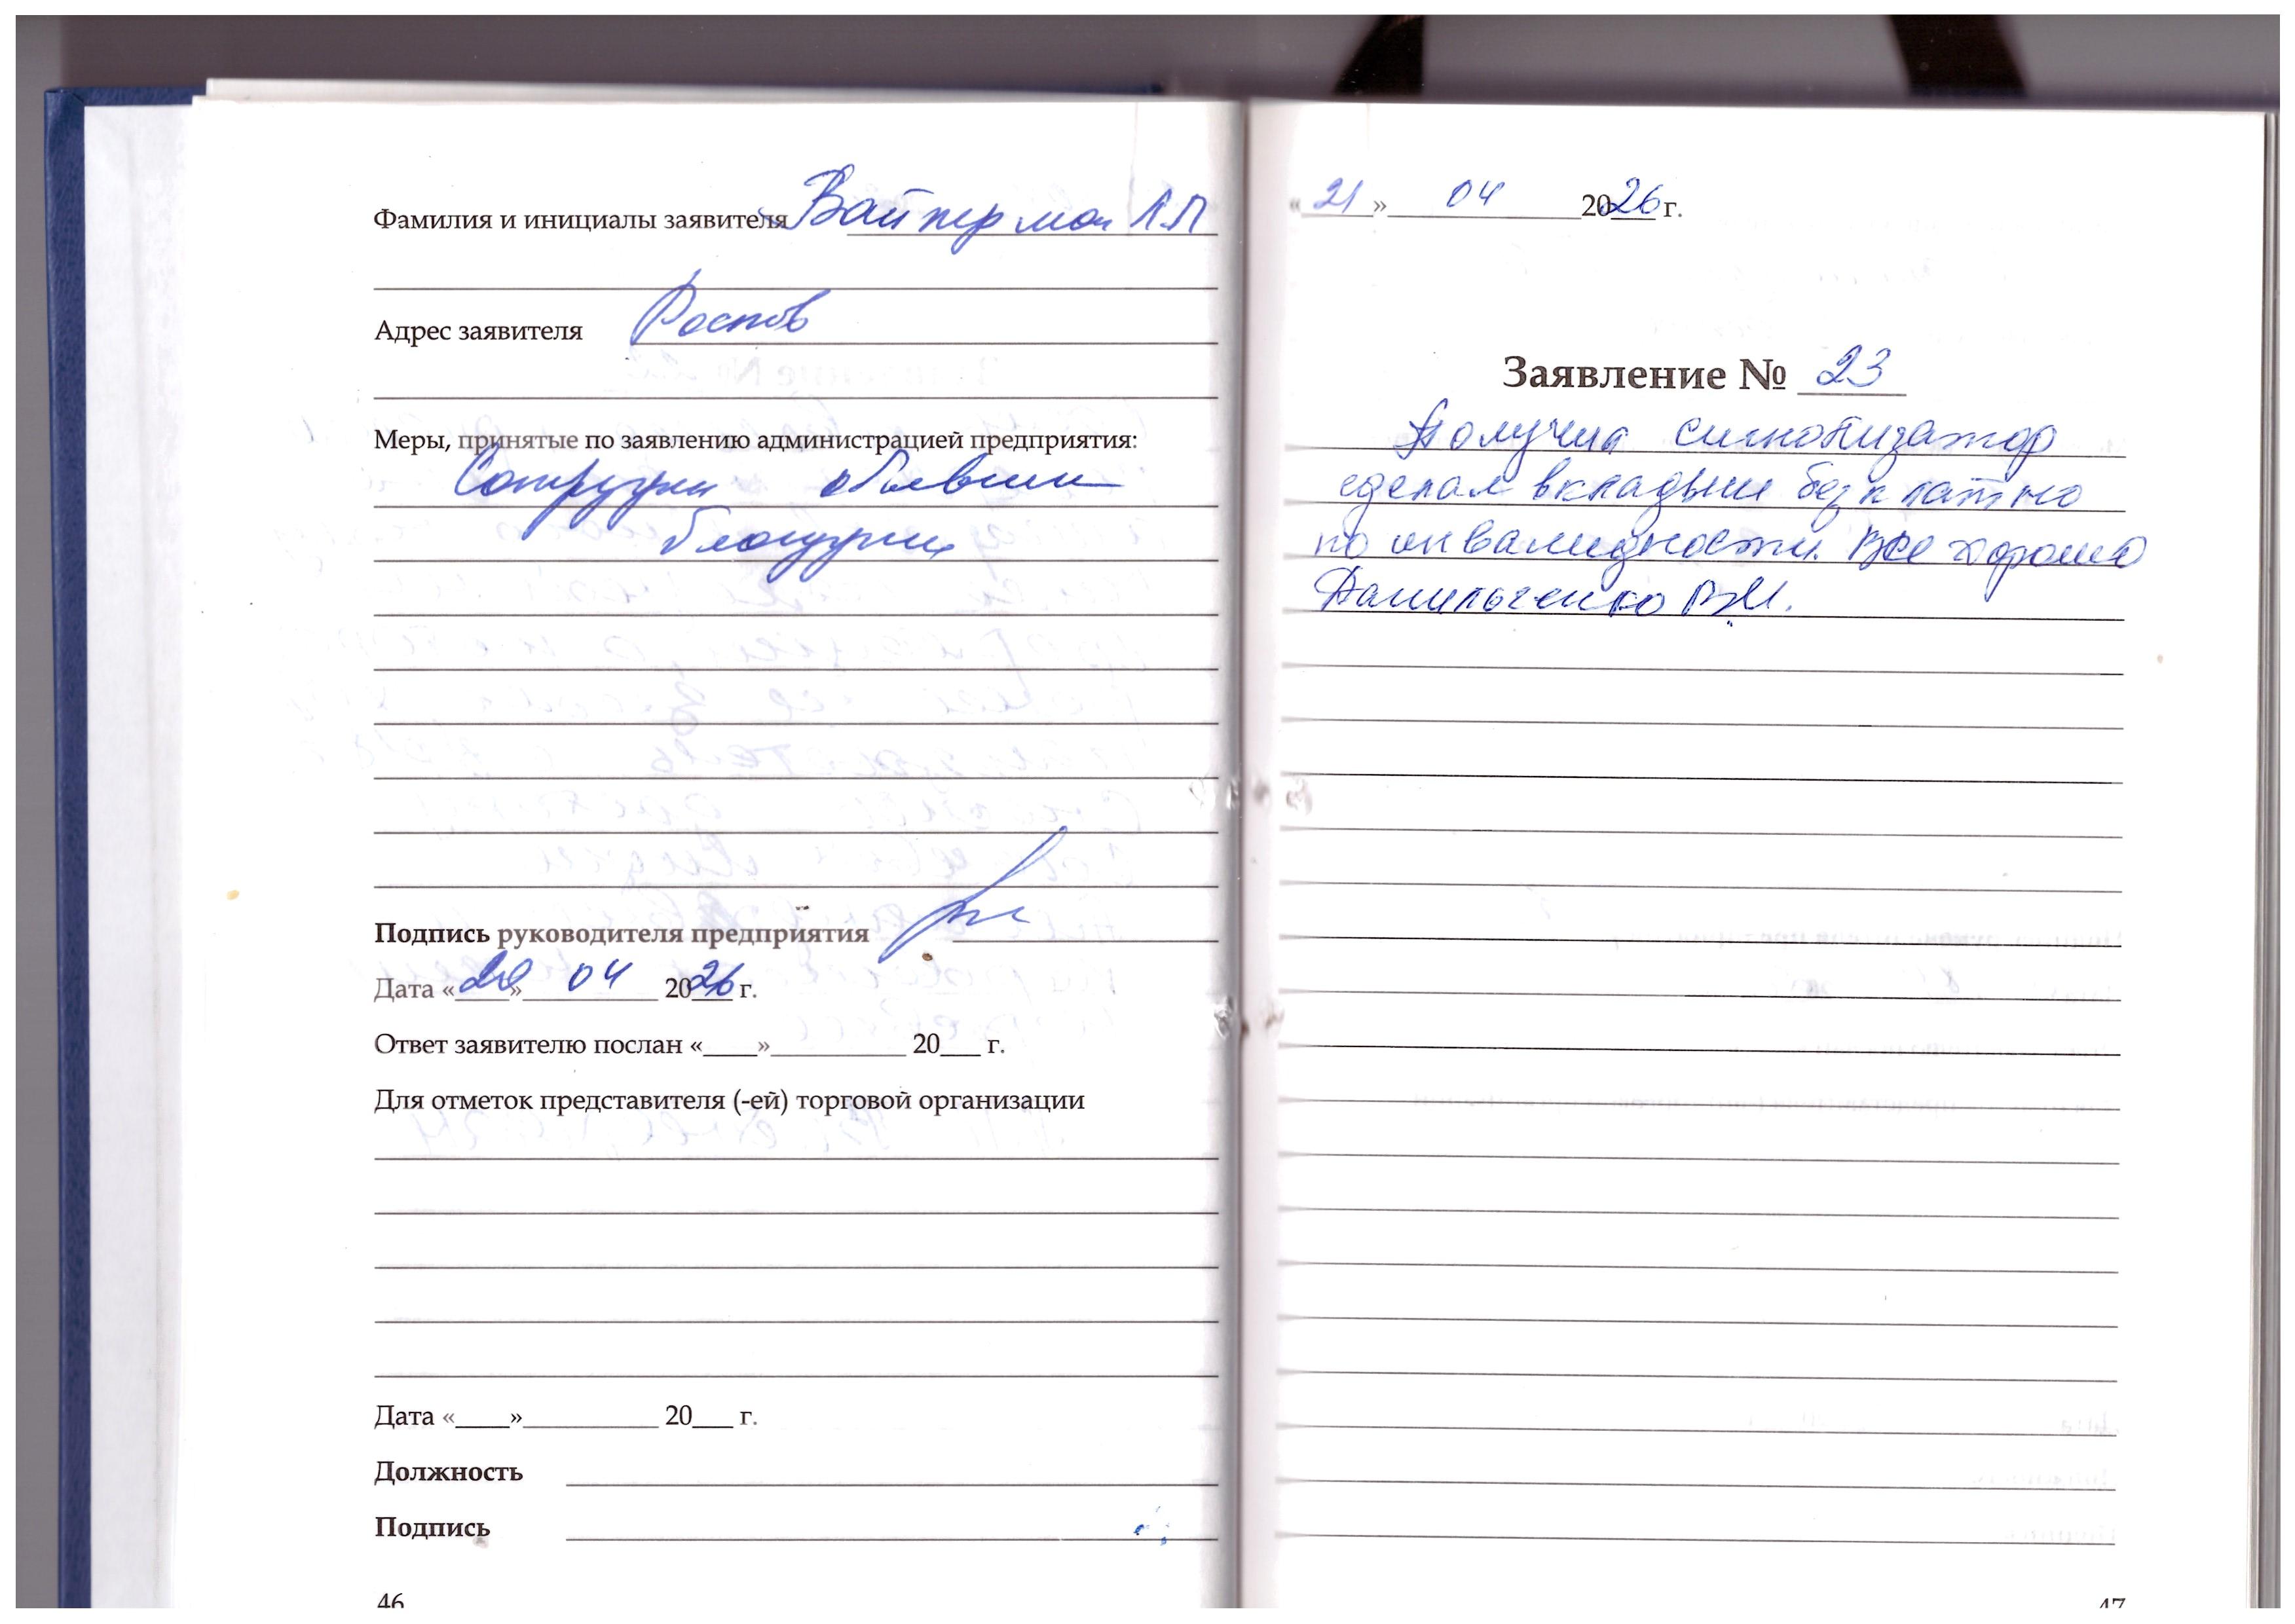 Фамилия и инициалы заявителя Вайперман Л.П
Адрес заявителя Ростов
Меры, принятые по заявлению администрацией предприятия:
Сотрудник объявлен
Подпись руководителя предприятия
Дата «20» 04 2026 г.
Ответ заявителю послан «____»__________ 20___ г.
Для отметок представителя (-ей) торговой организации
Дата «____»__________ 20___ г.
Должность
Подпись
46
«21» 04 2026 г.
Заявление № 23
Получил сигнализатор
сделал вкладыши безплатно
по инвалидности. Все хорошо
Данильченко В.И.
47